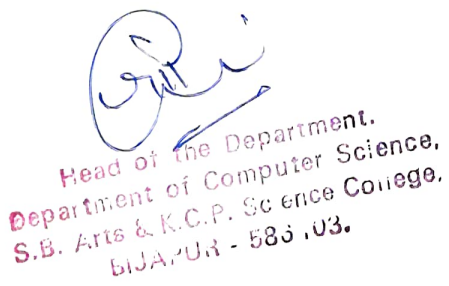 Head of the Department.
Department of Computer Science,
S.B. Arts & K.C.P. Science College,
BIJAPUR - 586 103.